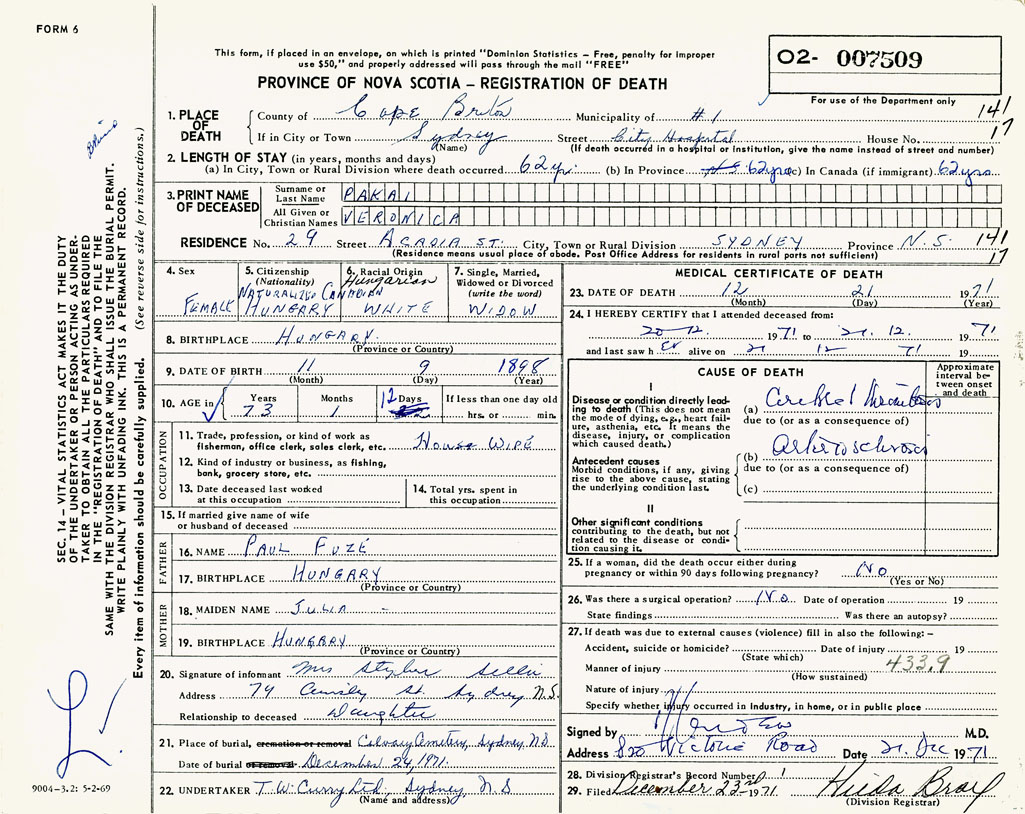 FORM 6
This form, if placed in an envelope, on which is printed "Dominion Statistics – Free, penalty for improper
use $50," and properly addressed will pass through the mail "FREE"
O2- 007509
PROVINCE OF NOVA SCOTIA – REGISTRATION OF DEATH
For use of the Department only
1. PLACE OF DEATH
County of Cape Breton Municipality of #1 141
If in City or Town Sydney Street City Hospital House No. 17
(Name) (If death occurred in a hospital or Institution, give the name instead of street and number)
2. LENGTH OF STAY (in years, months and days)
(a) In City, Town or Rural Division where death occurred 62 yr. (b) In Province 62 yrs (c) In Canada (if immigrant) 62 yrs
3. PRINT NAME OF DECEASED
Surname or Last Name PAKAI
All Given or Christian Names VERONICA
RESIDENCE No. 29 Street ACADIA ST. City, Town or Rural Division SYDNEY Province N.S. 141
(Residence means usual place of abode. Post Office Address for residents in rural ports not sufficient) 17
4. Sex
FEMALE
5. Citizenship (Nationality)
NATURALIZED CANADIAN
HUNGARY
6. Racial Origin
Hungarian
WHITE
7. Single, Married, Widowed or Divorced (write the word)
WIDOW
8. BIRTHPLACE HUNGARY
(Province or Country)
9. DATE OF BIRTH 11 9 1898
(Month) (Day) (Year)
10. AGE in Years 73 Months 1 Days 12 If less than one day old
hrs. or min.
OCCUPATION
11. Trade, profession, or kind of work as
fisherman, office clerk, sales clerk, etc. HOUSE WIFE
12. Kind of industry or business, as fishing,
bank, grocery store, etc.
13. Date deceased last worked
at this occupation
14. Total yrs. spent in
this occupation
15. If married give name of wife
or husband of deceased
FATHER
16. NAME PAUL FUZE
17. BIRTHPLACE HUNGARY
(Province or Country)
MOTHER
18. MAIDEN NAME JULIA -
19. BIRTHPLACE HUNGARY
(Province or Country)
20. Signature of informant Mrs
Address 79 St. Sydney N.S.
Relationship to deceased Daughter
21. Place of burial, cremation or removal Calvary Cemetery, Sydney N.S
Date of burial or removal December 24, 1971.
22. UNDERTAKER T.W. Curry Ltd, Sydney, N.S
(Name and address)
MEDICAL CERTIFICATE OF DEATH
23. DATE OF DEATH 12 21 1971
(Month) (Day) (Year)
24. I HEREBY CERTIFY that I attended deceased from:
20 12. 1971 to 21. 12. 1971
and last saw her alive on 21 12 71 19
CAUSE OF DEATH
Approximate interval between onset and death
I
Disease or condition directly leading to death (This does not mean the mode of dying, e.g., heart failure, asthenia, etc. It means the disease, injury, or complication which caused death.)
(a) Cerebral thrombosis
due to (or as a consequence of)
Antecedent causes
Morbid conditions, if any, giving rise to the above cause, stating the underlying condition last.
(b) Arteriosclerosis
due to (or as a consequence of)
(c)
II
Other significant conditions
contributing to the death, but not related to the disease or condition causing it.
25. If a woman, did the death occur either during
pregnancy or within 90 days following pregnancy? No
(Yes or No)
26. Was there a surgical operation? No Date of operation 19
State findings Was there an autopsy?
27. If death was due to external causes (violence) fill in also the following: –
Accident, suicide or homicide? Date of injury 19
(State which)
Manner of injury 433.9
(How sustained)
Nature of injury
Specify whether injury occurred in Industry, in home, or in public place
Signed by M.D.
Address 820 Victoria Road Date 21. Dec 1971
28. Division Registrar's Record Number 1
29. Filed December 23rd 1971 Hilda
(Division Registrar)
SEC. 14 – VITAL STATISTICS ACT MAKES IT THE DUTY
OF THE UNDERTAKER OR PERSON ACTING AS UNDERTAKER TO OBTAIN ALL THE PARTICULARS REQUIRED
IN THE "REGISTRATION OF DEATH" AND TO FILE THE
SAME WITH THE DIVISION REGISTRAR WHO SHALL ISSUE THE BURIAL PERMIT.
WRITE PLAINLY WITH UNFADING INK. THIS IS A PERMANENT RECORD.
Every item of information should be carefully supplied. (See reverse side for instructions.)
9004-3.2: 5-2-69